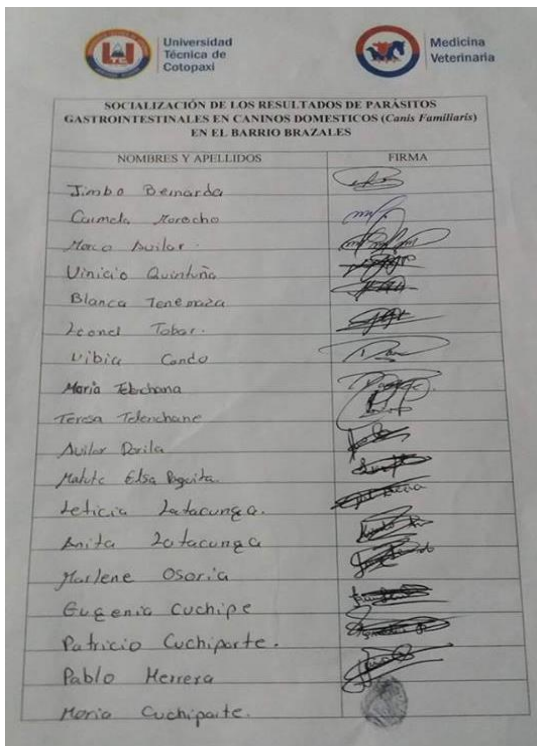 Universidad
Técnica de
Cotopaxi
Medicina
Veterinaria
SOCIALIZACIÓN DE LOS RESULTADOS DE PARÁSITOS
GASTROINTESTINALES EN CANINOS DOMESTICOS (Canis Familiaris)
EN EL BARRIO BRAZALES
NOMBRES Y APELLIDOS FIRMA
Jimbo Bernarda
Carmela Morocho
Marco Avilar.
Vinicio Quintuña
Blanca Tenemaza
Leonel Tobar.
Vibia Condo
Maria
Teresa Telenchane
Avilar Dorila
Matute Elsa
Leticia Latacunga.
Anita Latacunga
Marlene Osoria
Eugenia Cuchipe
Patricio Cuchiparte.
Pablo Herrera
Maria Cuchiparte.